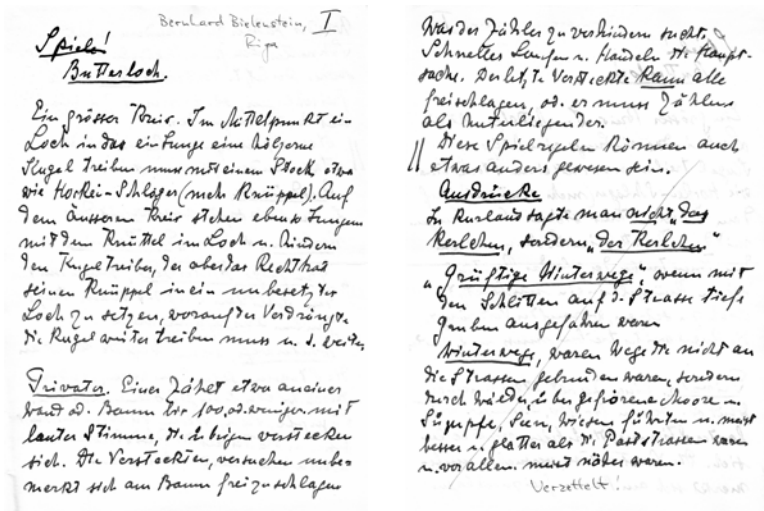 Bernhard Bielenstein, I
Riga
Spiele!
Butterloch.
Ein grosser Kreis. Im Mittelpunkt ein
Loch in das ein Junge eine hölzerne
Kugel treiben muss mit einem Stock etwa
wie Hockei-Schläger (mehr Knüppel). Auf
dem äusseren Kreis stehen ebenso Jungen
mit dem Knüttel im Loch u. hindern
den Kugeltreiber, der aber das Recht hat
seinen Knüppel in ein unbesetztes
Loch zu setzen, worauf der Verdrängte
die Kugel weiter treiben muss u. s. weiter
Privater. Einer zählt etwa an einer
Wand od. Baum bis 100, od. weniger mit
lauter Stimme, die übrigen verstecken
sich. Die Versteckten, versuchen unbe-
merkt sich am Baum freizuschlagen
Was der Zähler zu verhindern sucht.
Schnelles Laufen u. Handeln die Haupt-
sache. Der letzte Versteckte kann alle
freischlagen, od. er muss Zählen
als Unterliegender.
|| Diese Spielregeln können auch
etwas anders gewesen sein.
Ausdrücke
In Kurland sagte man nicht "das
Kerlchen, sondern "der Kerlchen"
"Grüftige Winterwege", wenn mit
den Schlitten auf d. Strasse tiefe
Gruben ausgefahren waren
Winterwege, waren Wege die nicht an
die Strassen gebunden waren, sondern
durch Wälder, über gefrorene Moore u.
Sümpfe, Seen, Wiesen führten u. meist
besser u. glatter als die Poststrassen waren
u. vor allem meist näher waren.
Verzettelt!